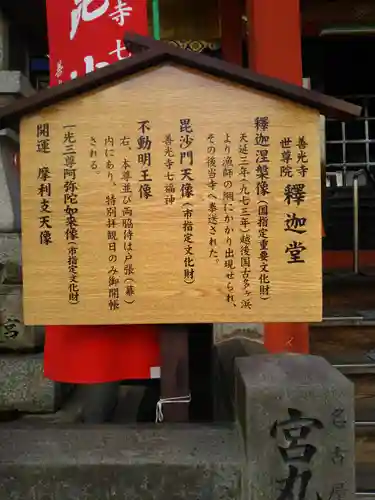 善光寺
世尊院
釋迦堂
釋迦涅槃像(国指定重要文化財)
天延三年(九七三年)越後国古多ヶ浜
より漁師の網にかかり出現せられ、
その後当寺へ奉送された。
毘沙門天像(市指定文化財)
善光寺七福神
不動明王像
右、本尊並び両脇侍は戸張(幕)
内にあり、特別拝観日のみ御開帳
される。
一光三尊阿弥陀如来像(市指定文化財)
開運 摩利支天像
寺七
善
名古屋
宮丸
宮